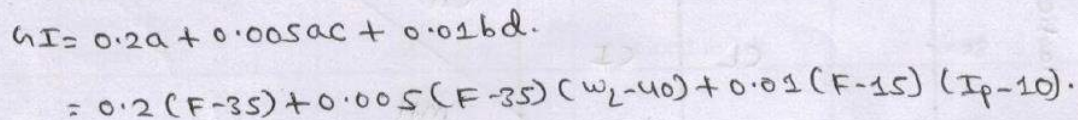 GI= 0.2a + 0.005ac + 0.01bd.
= 0.2 (F-35) + 0.005 (F-35) (w_L-40) + 0.01 (F-15) (I_P-10).